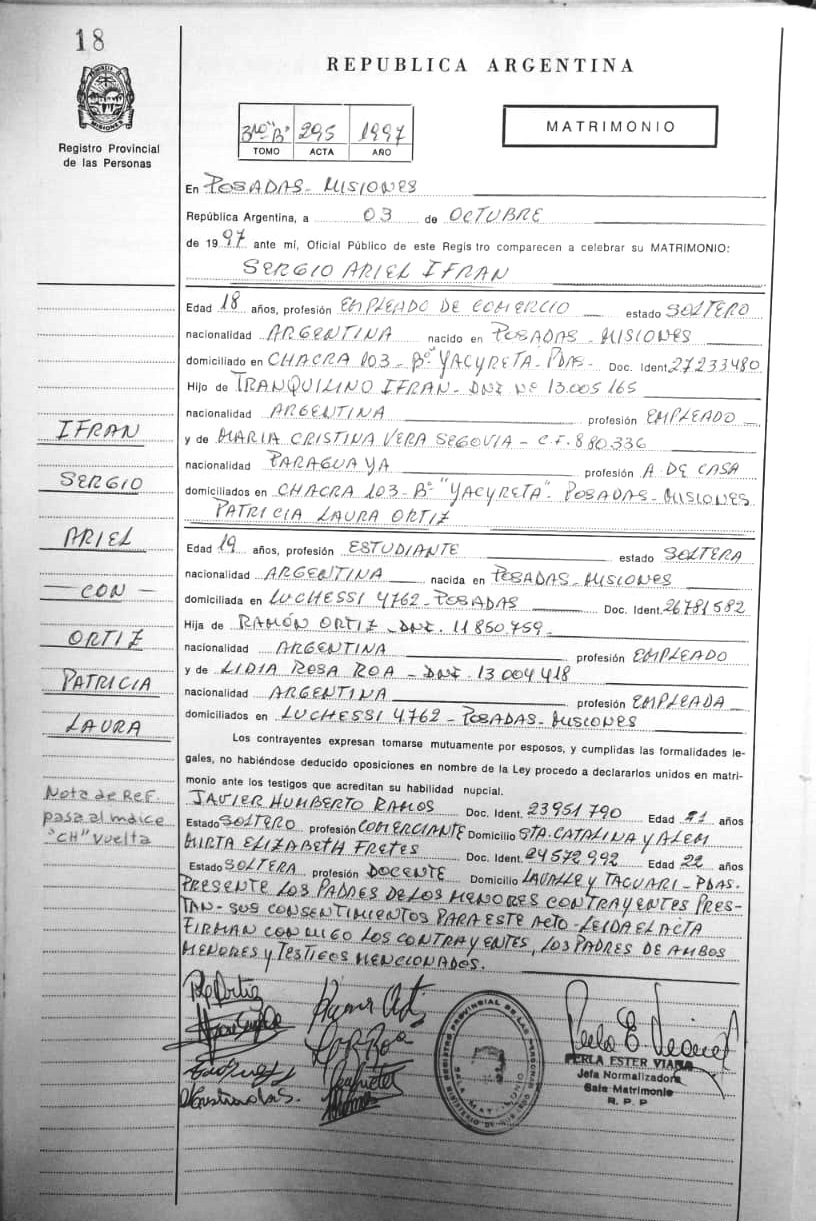 18
REPUBLICA ARGENTINA
PROVINCIA DE MISIONES
Registro Provincial
de las Personas
3ro "B" 295 1997
TOMO ACTA AÑO
MATRIMONIO
En POSADAS - MISIONES
República Argentina, a 03 de OCTUBRE
de 1997 ante mí, Oficial Público de este Registro comparecen a celebrar su MATRIMONIO:
SERGIO ARIEL IFRAN
Edad 18 años, profesión EMPLEADO DE COMERCIO estado SOLTERO
nacionalidad ARGENTINA nacido en POSADAS - MISIONES
domiciliado en CHACRA 103 - Bº YACYRETA - PDAS - Doc. Ident. 27233480
Hijo de TRANQUILINO IFRAN - DNI Nº 13.005.165
nacionalidad ARGENTINA profesión EMPLEADO
y de MARIA CRISTINA VERA SEGOVIA - C.F. 880.336
nacionalidad PARAGUAYA profesión A. DE CASA
domiciliados en CHACRA 103 - Bº "YACYRETA" - POSADAS - MISIONES
PATRICIA LAURA ORTIZ
Edad 19 años, profesión ESTUDIANTE estado SOLTERA
nacionalidad ARGENTINA nacida en POSADAS - MISIONES
domiciliada en LUCHESSI 4762 - POSADAS Doc. Ident. 26781582
Hija de RAMÓN ORTIZ - DNI. 11.850.759 -
nacionalidad ARGENTINA profesión EMPLEADO
y de LIDIA ROSA ROA - DNI. 13.004.418
nacionalidad ARGENTINA profesión EMPLEADA
domiciliados en LUCHESSI 4762 - POSADAS - MISIONES
Los contrayentes expresan tomarse mutuamente por esposos, y cumplidas las formalidades le-
gales, no habiéndose deducido oposiciones en nombre de la Ley procedo a declararlos unidos en matri-
monio ante los testigos que acreditan su habilidad nupcial.
JAVIER HUMBERTO RAMOS Doc. Ident. 23951790 Edad 21 años
Estado SOLTERO profesión COMERCIANTE Domicilio STA. CATALINA y ALEM
MIRTA ELIZABETH FRETES Doc. Ident. 24572992 Edad 22 años
Estado SOLTERA profesión DOCENTE Domicilio LAVALLE y TACUARI - PDAS.
PRESENTE LOS PADRES DE LOS MENORES CONTRAYENTES PRES-
TAN - SUS CONSENTIMIENTOS PARA ESTE ACTO - LEIDA EL ACTA
FIRMAN CONMIGO LOS CONTRAYENTES, LOS PADRES DE AMBOS
MENORES y TESTIGOS MENCIONADOS.
IFRAN
SERGIO
ARIEL
- CON -
ORTIZ
PATRICIA
LAURA
Nota de Ref.
pasa al indice
"CH" Vuelta
REGISTRO PROVINCIAL DE LAS PERSONAS
SALA MATRIMONIO
PERLA ESTER VIANA
Jefa Normalizadora
Sala Matrimonio
R. P. P